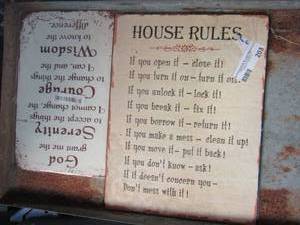 HOUSE RULES
If you open it – close it!
If you turn it on – turn it off
If you unlock it – lock it!
If you break it – fix it!
If you borrow it – return it!
If you make a mess – clean it up!
If you move it – put it back!
If you don't know – ask!
If it doesn't concern you –
Don't mess with it!
God
grant me the
Serenity
to accept the things
I cannot change the
Courage
to change the things
I can and the
Wisdom
to know the
difference.